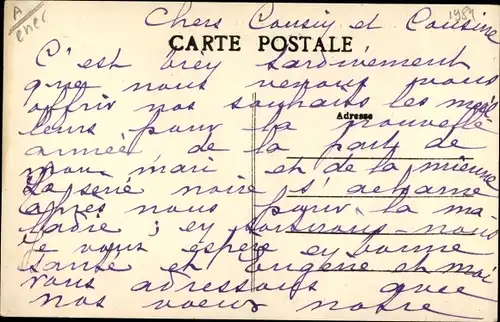 A
1984
Chers Cousin et Cousine
CARTE POSTALE
C'est bien tardivement
que nous venons vous
offrir nos souhaits les meil
Adresse
leurs pour la nouvelle
année de la part de
mon mari et de la mienne
La serie noire s'acharne
après nous pour la ma
ladie ; en sortirons-nous
Je vous espère en bonne
santé et Eugene et moi
vous adressons avec
nos voeux notre